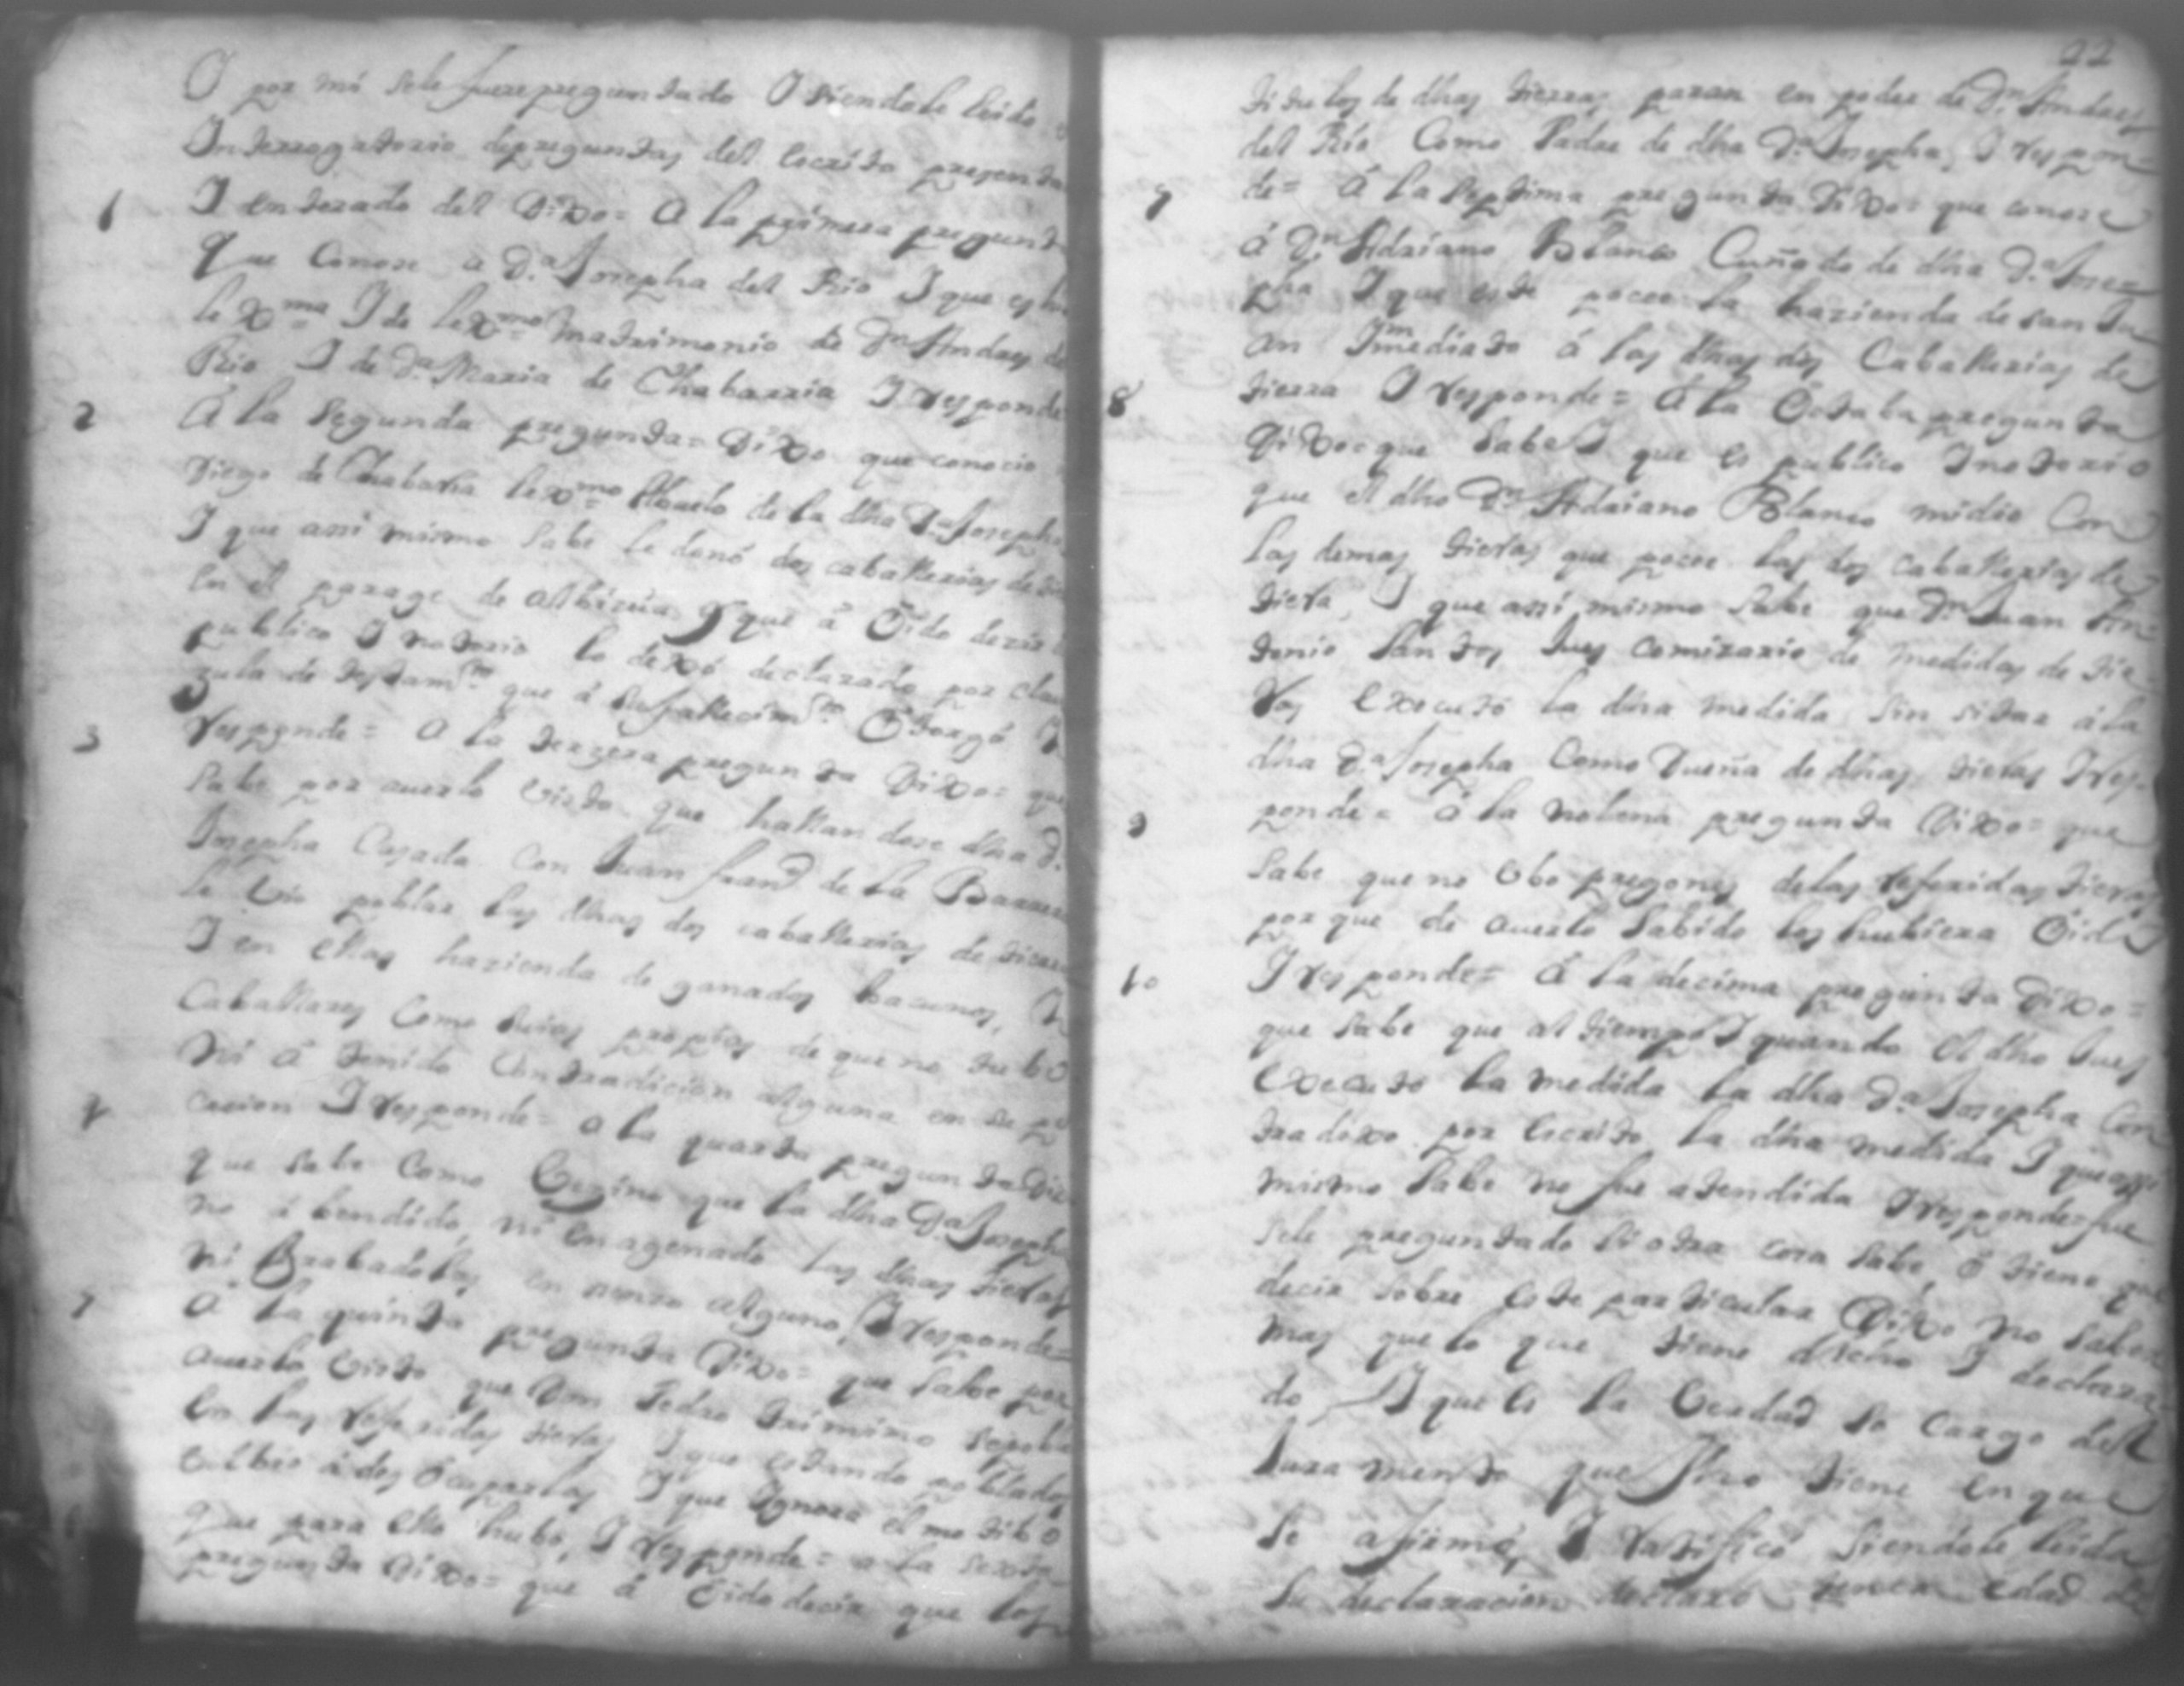 I por mi sele fuere preguntado I siendole leido
Interrogatorio depreguntas del escrito presenta
1 I enterado del Dixo= A la primera pregunt
que Conose a D.ª Josepha del Rio I que es hi
lexma I de lexmo Matrimonio de Dn Andres de
Rio I de Dª Maria de Chabarria I responde
2 A la segunda pregunta= Dixo que conocio
Diego de Chabaria lexmo Abuelo de la dha Dª Josepha
I que assi mismo sabe le donó dos caballerias de
en el parage de I que á Oido dezir
publico I notorio lo dexó declarado por clau
zula de testamto que á su fallecimto Otorgó I
3 responde= A la terzera pregunta Dixo= que
sabe por auerlo visto que hallandose dha D.
Josepha Casada Con Juan Franco de la Barrera
le bio poblar las dhas dos caballerias de tierra
I en ellas hazienda de ganados bacunos, I
Caballares Como suias propias de que no tubo
ni á tenido Contradicion alguna en su po
4 cecion I responde= a la quarta pregunta Dix
que sabe Como Vezino que la dha Dª Josepha
no á bendido, ni enagenado las dhas tieras
ni grabadolas en senzo alguno, I responde=
5 A la quinta pregunta Dixo= que sabe por
auerlo visto que Don Pedro se poblo
en las referidas tieras I que estando pobladas
bolbio á des Ocuparlas I que Ignora el motibo
que para ello hubo, I responde= a la sexta
pregunta Dixo= que á Oido decir que los
22
titulos de dhas tierras paran en poder de Dn Andres
del Rio Como Padre de dha Dª Josepha, I respon-
7 de= Á la septima pregunta Dixo= que conose
á Dn Adriano Blanco Cuñado de dha Dª Jose=
pha I que este pocee la hazienda de san Ju-
an Immediato á las dhas dos Caballerias de
8 tierra I responde= Á la Octaba pregunta
Dixo= que sabe I que es publico I notorio
que el dho Dn Adriano Blanco midio Con
las demas tieras que pocee las dos caballerias de
tiera, I que assi mismo sabe que Dn Juan An-
tonio Santos Jues Comizario de Medidas de tie-
ras executó la dha medida sin sitar á la
dha Dª Josepha Como Dueña de dhas tieras I res-
9 ponde= Á la nobena pregunta Dixo= que
sabe que no Obo pregones delas referidas tieras
por que de auerlo sabido los hubiera Oido
10 I responde= Á la decima pregunta Dixo=
que sabe que al tiempo I quando el dho Jues
executó la medida la dha Dª Josepha Con
tradixo por escrito la dha medida I que assi
mismo sabe no fue atendida I responde= fue
sele preguntado si otra cosa sabe, ó tiene que
decir sobre este particular Dixo no saber
mas que lo que tiene dicho I declara-
do, I que es la Verdad so cargo del
Juramento que fho tiene en que
se afirmó, I ratificó siendole leida
su declaracion declaró tener edad de